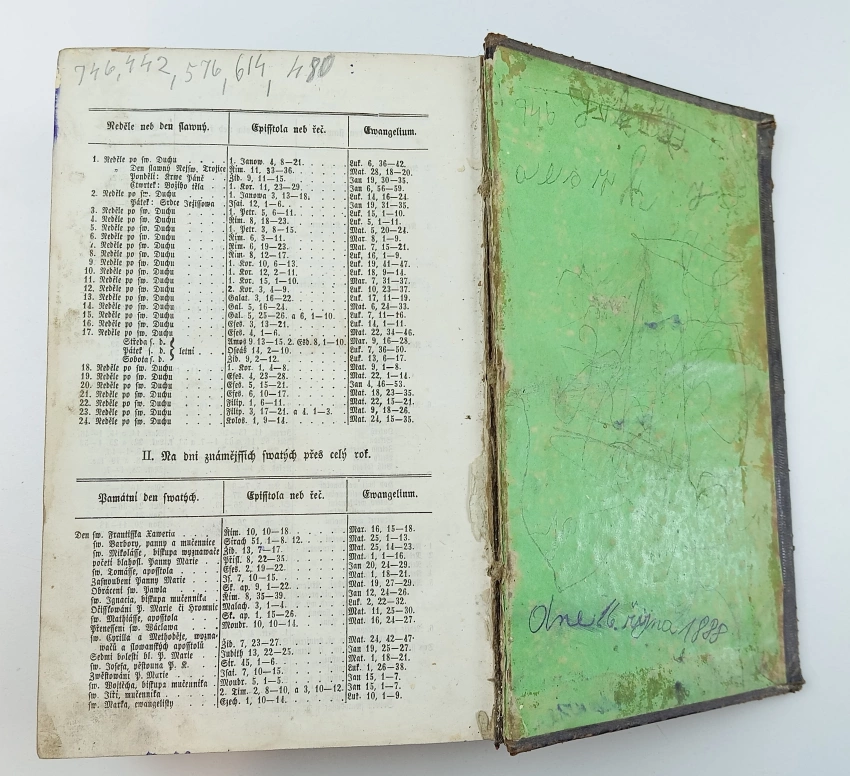 746, 442, 576, 614, 480 :
Neděle neb den slawný. Episstola neb řeč. Ewangelium.
1. Neděle po sw. Duchu 1. Janow. 4, 8—21. Luk. 6, 36—42.
„ Den slawný Nejsw. Trojice Řím. 11, 33—36. Mat. 28, 18—20.
Pondělí: Krwe Páně Žid. 9, 11—15. Jan 19, 30—35.
Čtwrtek: Božího těla 1. Kor. 11, 23—29. Jan 6, 56—59.
2. Neděle po sw. Duchu 1. Janowa 3, 13—18. Luk. 14, 16—24.
Pátek: Srdce Ježíssowa Isai. 12, 1—6. Jan 19, 31—35.
3. Neděle po sw. Duchu 1. Petr. 5, 6—11. Luk. 15, 1—10.
4. Neděle po sw. Duchu Řím. 8, 18—23. Luk. 5, 1—11.
5. Neděle po sw. Duchu 1. Petr. 3, 8—15. Mat. 5, 20—24.
6. Neděle po sw. Duchu Řím. 6, 3—11. Mar. 8, 1—9.
7. Neděle po sw. Duchu Řím. 6, 19—23. Mat. 7, 15—21.
8. Neděle po sw. Duchu Řím. 8, 12—17. Luk. 16, 1—9.
9 Neděle po sw. Duchu 1. Kor. 10, 6—13. Luk. 19, 41—47.
10. Neděle po sw. Duchu 1. Kor. 12, 2—11. Luk. 18, 9—14.
11. Neděle po sw. Duchu 1. Kor. 15, 1—10. Mar. 7, 31—37.
12. Neděle po sw. Duchu 2. Kor. 3, 4—9. Luk. 10, 23—37.
13. Neděle po sw. Duchu Galat. 3, 16—22. Luk. 17, 11—19.
14. Neděle po sw. Duchu Gal. 5, 16—24. Mat. 6, 24—33.
15. Neděle po sw. Duchu Gal. 5, 25—26. a 6, 1—10. Luk. 7, 11—16.
16. Neděle po sw. Duchu Efes. 3, 13—21. Luk. 14, 1—11.
17. Neděle po sw. Duchu Efes. 4, 1—6. Mat. 22, 34—46.
Středa s. d. Amos 9. 13—15. 2. Esd. 8, 1—10. Mar. 9, 16—28.
Pátek s. d. letní Oseáš 14, 2—10. Luk. 7, 36—50.
Sobota s. d. Žid. 9, 2—12. Luk. 13, 6—17.
18. Neděle po sw. Duchu 1. Kor. 1, 4—8. Mat. 9, 1—8.
19. Neděle po sw. Duchu Efes. 4, 23—28. Mat. 22, 1—14.
20. Neděle po sw. Duchu Efes. 5, 15—21. Jan 4, 46—53.
21. Neděle po sw. Duchu Efes. 6, 10—17. Mat. 18, 23—35.
22. Neděle po sw. Duchu Filip. 1, 6—11. Mat. 22, 15—21.
23. Neděle po sw. Duchu Filip. 3, 17—21. a 4. 1—3. Mat. 9, 18—26.
24. Neděle po sw. Duchu Kolos. 1, 9—14. Mat. 24, 15—35.
II. Na dni známějssích swatých přes celý rok.
Památní den swatých. Episstola neb řeč. Ewangelium.
Den sw. Františka Xaweria Řím. 10, 10—18 Mar. 16, 15—18.
sw. Barbory, panny a mučennice Sirach 51, 1—8. 12. Mat. 25, 1—13.
sw. Mikolásse, biskupa wyznawače Žid. 13, 7—17. Mat. 25, 14—23.
početí blahosl. Panny Marie Přísl. 8, 22—35. Mat. 1, 1—16.
sw. Tomásse, aposstola Efes. 2, 19—22. Jan 20, 24—29.
Zasnoubení Panny Marie Is. 7, 10—15. Mat. 1, 18—21.
Obrácení sw. Pawla Sk. ap. 9, 1—22. Mat. 19, 27—29.
sw. Ignacia, biskupa mučenníka Řím. 8, 35—39. Jan 12, 24—26.
Očissťowání P. Marie či Hromnic Malach. 3, 1—4. Luk. 2, 22—32.
sw. Mathiásse, aposstola Sk. ap. 1, 15—26. Mat. 11, 25—30.
Přenessení sw. Wáclawa Moudr. 10, 10—14. Mat. 16, 24—27.
sw. Cyrilla a Methoděje, wyzna-
wačů a slowanských aposstolů Žid. 7, 23—27. Mat. 24, 42—47.
Sedmi bolestí bl. P. Marie Judith 13, 22—25. Jan 19, 25—27.
sw. Josefa, pěstouna P. K. Sir. 45, 1—6. Mat. 1, 18—21.
Zwěstowání P. Marie Isai. 7, 10—15. Luk. 1, 26—38.
sw. Wojtěcha, biskupa mučenníka Moudr. 5, 1—5. Jan 15, 1—7.
sw. Jiří, mučenníka 2. Tim. 2, 8—10, a 3, 10—12. Jan 15, 1—7.
sw. Marka, ewangelisty Ezech. 1, 10—14. Luk. 10, 1—9.
946
dne 16. října 1888